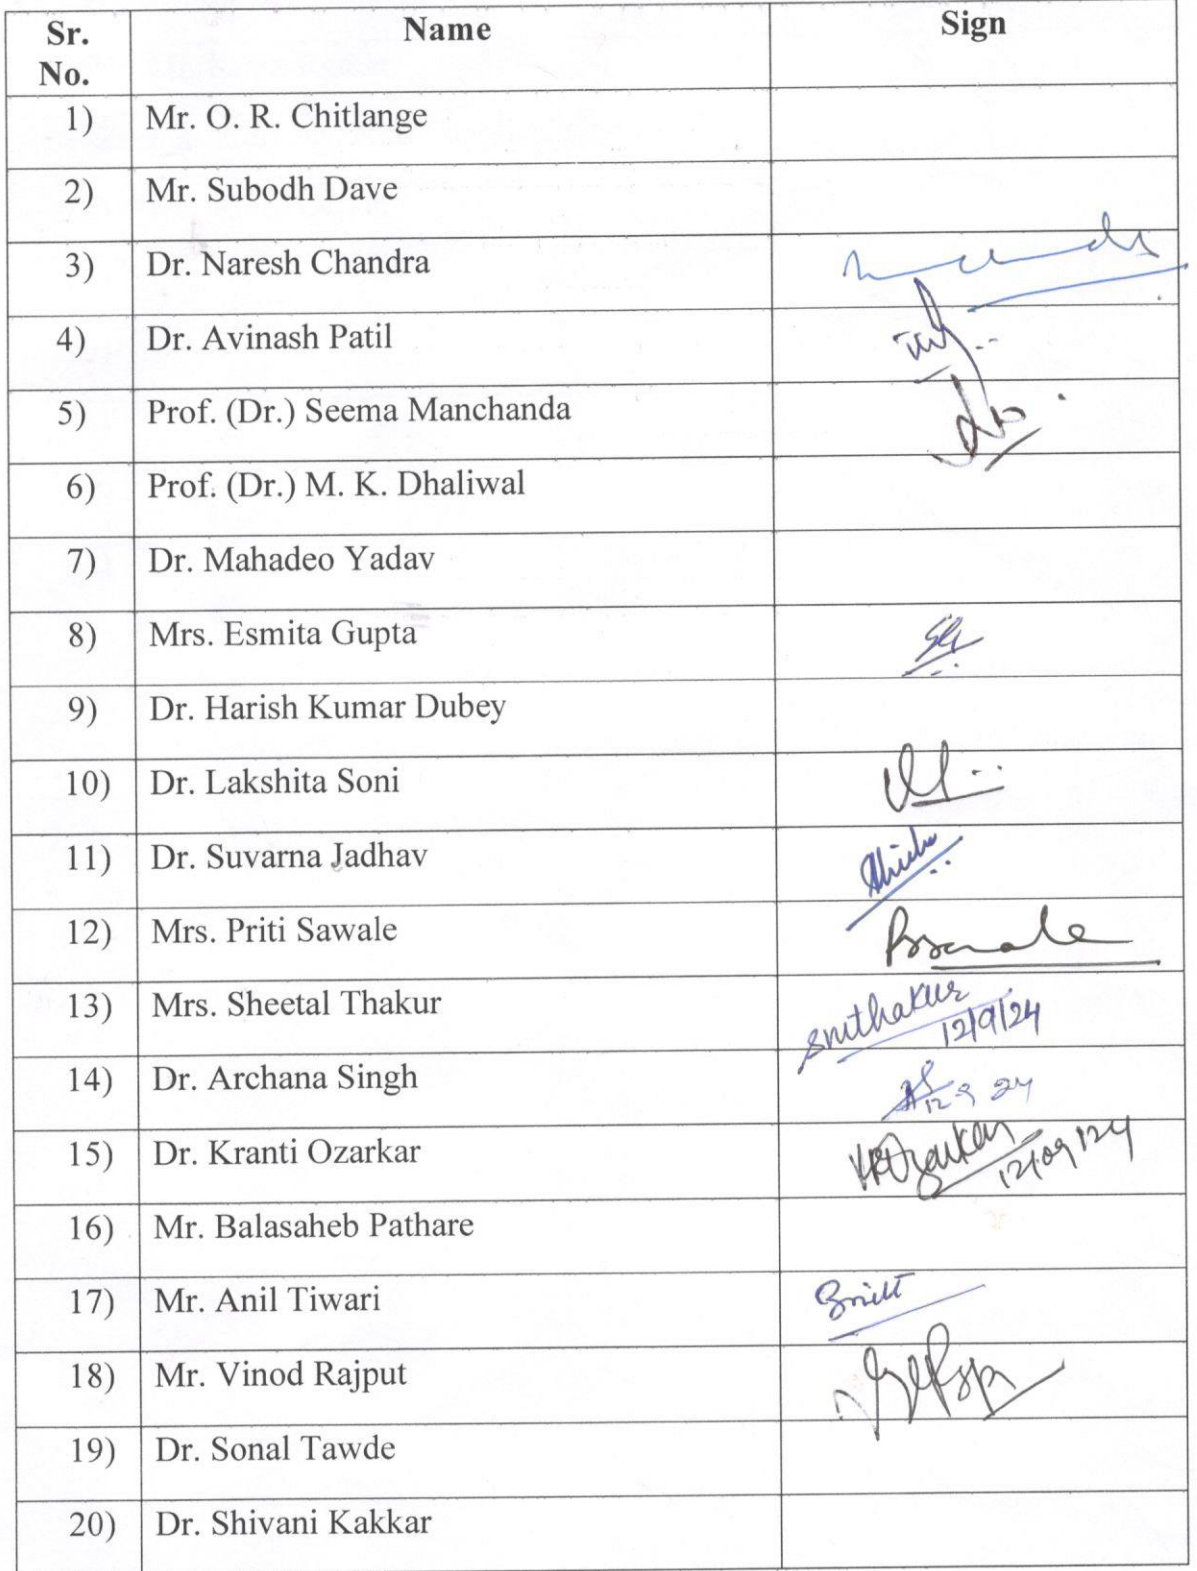 Sr. No. Name Sign
1) Mr. O. R. Chitlange
2) Mr. Subodh Dave
3) Dr. Naresh Chandra
4) Dr. Avinash Patil
5) Prof. (Dr.) Seema Manchanda
6) Prof. (Dr.) M. K. Dhaliwal
7) Dr. Mahadeo Yadav
8) Mrs. Esmita Gupta
9) Dr. Harish Kumar Dubey
10) Dr. Lakshita Soni
11) Dr. Suvarna Jadhav
12) Mrs. Priti Sawale
13) Mrs. Sheetal Thakur
12/9/24
14) Dr. Archana Singh
12 9 24
15) Dr. Kranti Ozarkar
12/09/24
16) Mr. Balasaheb Pathare
17) Mr. Anil Tiwari
18) Mr. Vinod Rajput
19) Dr. Sonal Tawde
20) Dr. Shivani Kakkar